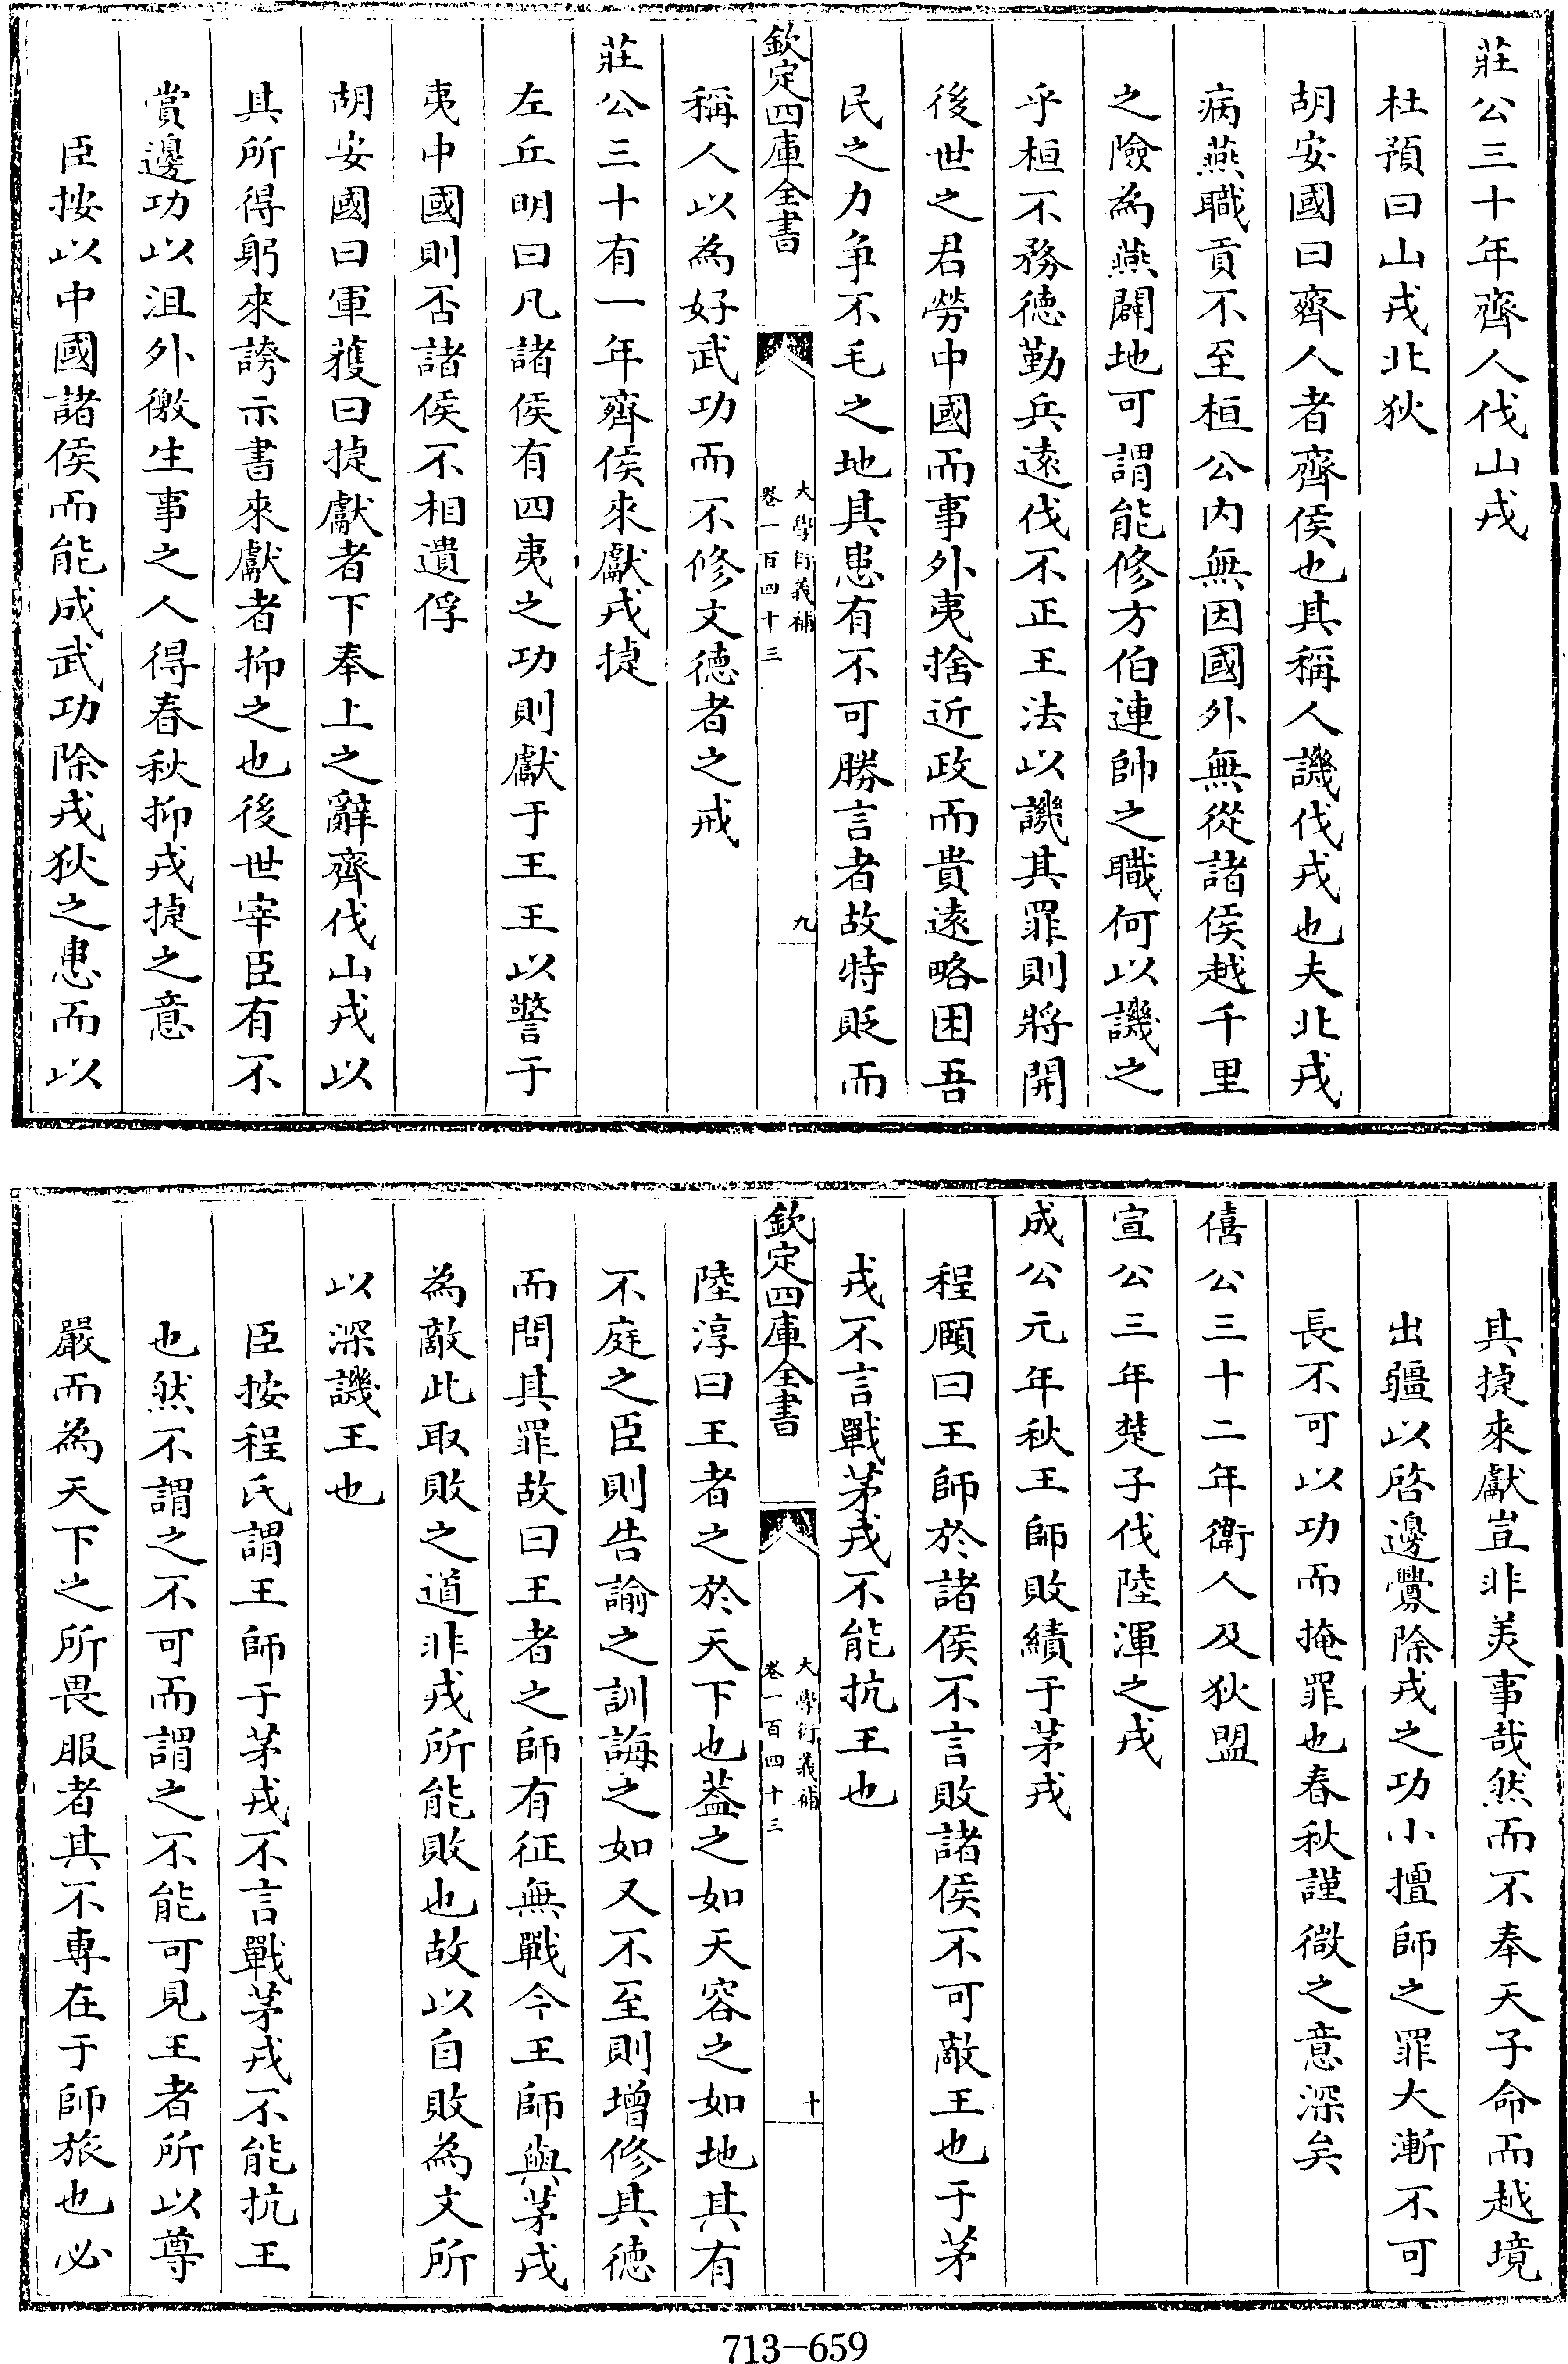 莊公三十年齊人伐山戎
杜預曰山戎北狄
胡安國曰齊人者齊侯也其稱人譏伐戎也夫北戎
病燕職貢不至桓公内無因國外無從諸侯越千里
之險為燕闢地可謂能修方伯連帥之職何以譏之
乎桓不務德勤兵遠伐不正王法以譏其罪則將開
後世之君勞中國而事外夷捨近政而貴遠略困吾
民之力争不毛之地其患有不可勝言者故特貶而
欽定四庫全書
大學衍義補
卷一百四十三
九
稱人以為好武功而不修文德者之戒
莊公三十有一年齊侯來獻戎捷
左丘明曰凡諸侯有四夷之功則獻于王王以警于
夷中國則否諸侯不相遺俘
胡安國曰軍獲曰捷獻者下奉上之辭齊伐山戎以
其所得躬來誇示書來獻者抑之也後世宰臣有不
賞邊功以沮外徼生事之人得春秋抑戎捷之意
臣按以中國諸侯而能成武功除戎狄之患而以
其捷來獻豈非美事哉然而不奉天子命而越境
出疆以啓邊釁除戎之功小擅師之罪大漸不可
長不可以功而掩罪也春秋謹微之意深矣
僖公三十二年衛人及狄盟
宣公三年楚子伐陸渾之戎
成公元年秋王師敗績于茅戎
程頤曰王師於諸侯不言敗諸侯不可敵王也于茅
戎不言戰茅戎不能抗王也
欽定四庫全書
大學衍義補
卷一百四十三
十
陸淳曰王者之於天下也蓋之如天容之如地其有
不庭之臣則告諭之訓誨之如又不至則增修其德
而問其罪故曰王者之師有征無戰今王師與茅戎
為敵此取敗之道非戎所能敗也故以自敗為文所
以深譏王也
臣按程氏謂王師于茅戎不言戰茅戎不能抗王
也然不謂之不可而謂之不能可見王者所以尊
嚴而為天下之所畏服者其不專在于師旅也必
713-659